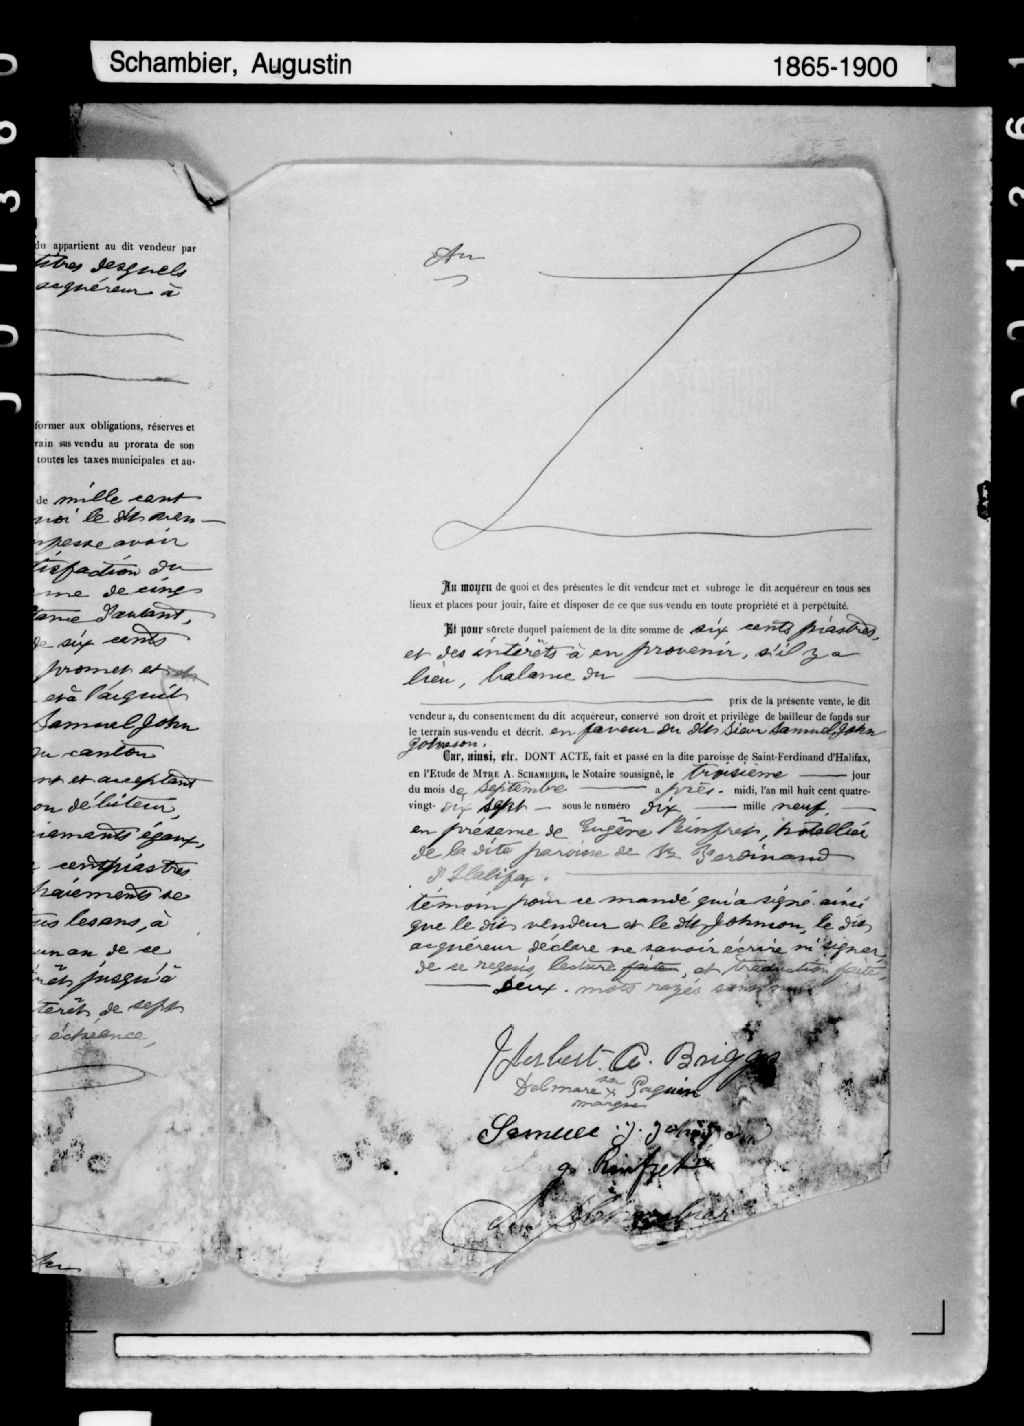 Schambier, Augustin 1865-1900
du appartient au dit vendeur par
titres desquels
acquéreur à
former aux obligations, réserves et
rain sus vendu au prorata de son
toutes les taxes municipales et au-
de mille cent
moi le dit ven-
fesse avoir
tisfaction du
me de cinq
tame d'autant,
de six cents
promet et
et à l'acquit
Samuel John
du canton
nt et acceptant
on débiteur,
iements égaux,
centpiastres
paiements se
us les ans, à
un an de ce
rêt jusqu'à
terêt de sept
échéance,
Au moyen de quoi et des présentes le dit vendeur met et subroge le dit acquéreur en tous ses
lieux et places pour jouir, faire et disposer de ce que sus-vendu en toute propriété et à perpétuité.
Et pour sûreté duquel paiement de la dite somme de six cents piastres,
et des intérêts à en provenir, s'il y a
lieu, balance du
prix de la présente vente, le dit
vendeur a, du consentement du dit acquéreur, conservé son droit et privilège de bailleur de fonds sur
le terrain sus-vendu et décrit. en faveur du dit Sieur Samuel John
Johnson.
Car, ainsi, etc. DONT ACTE, fait et passé en la dite paroisse de Saint-Ferdinand d'Halifax,
en l'Etude de MTRE A. SCHAMBIER, le Notaire soussigné, le troisième jour
du mois de Septembre après-midi, l'an mil huit cent quatre-
vingt-dix sept sous le numéro dix mille neuf
en présence de Eugène Rinfret, hotellier
de la dite paroisse de St Ferdinand
d'Halifax.
témoin pour ce mandé qui a signé ainsi
que le dit vendeur et le dit Johnson, le dit
acquéreur déclare ne savoir écrire ni signer
de ce requis, lecture faite, et traduction faite,
Deux mots rayés sont nuls
Herbert A. Briggs
Delmare sa x Paquin
marque
Samuel J. Johnson
Eug. Rinfret
A. Schambier